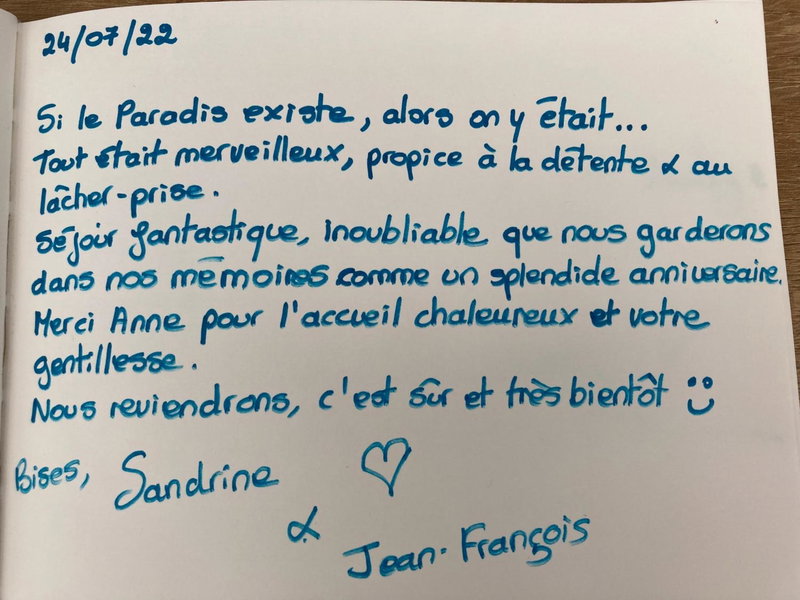 24/07/22
Si le Paradis existe, alors on y était...
Tout était merveilleux, propice à la détente & au
lâcher-prise.
Séjour fantastique, inoubliable que nous garderons
dans nos mémoires comme un splendide anniversaire.
Merci Anne pour l'accueil chaleureux et votre
gentillesse.
Nous reviendrons, c'est sûr et très bientôt :)
Bises, Sandrine ♡
&
Jean-François